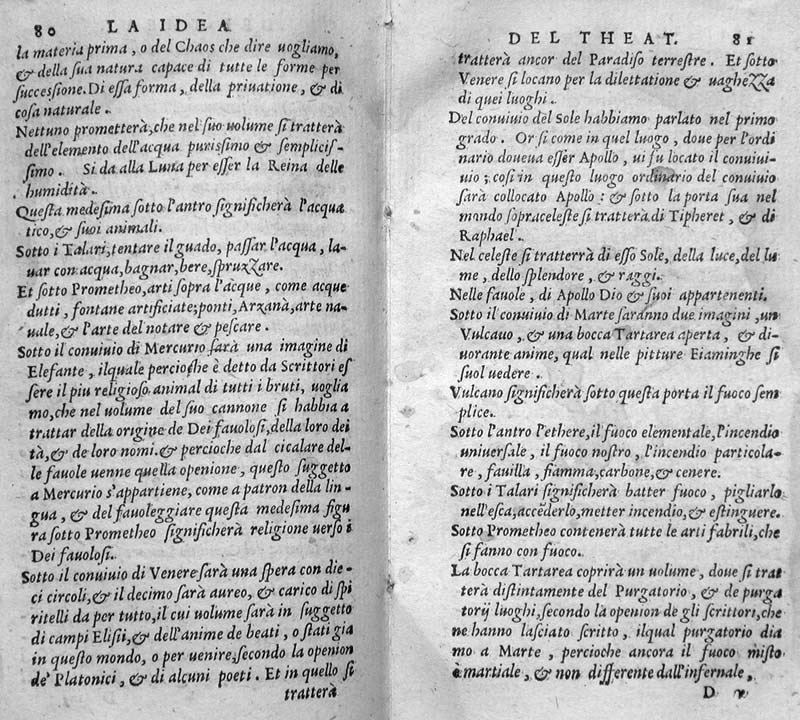 80 LA IDEA
la materia prima, o del Chaos che dire uogliamo,
& della sua natura capace di tutte le forme per
successione. Di essa forma, della priuatione, & di
cosa naturale.
Nettuno prometterà, che nel suo uolume si tratterà
dell'elemento dell'acqua purissimo & semplicis-
simo. Si da alla Luna per esser la Reina delle
humidità.
Questa medesima sotto l'antro significherà l'acqua
tico, & suoi animali.
Sotto i Talari, tentare il guado, passar l'acqua, la-
uar con acqua, bagnar, bere, spruzzare.
Et sotto Prometheo, arti sopra l'acque, come acque
dutti, fontane artificiate; ponti, Arzanà, arte na-
uale, & l'arte del notare & pescare.
Sotto il conuiuio di Mercurio sarà una imagine di
Elefante, ilquale percioche è detto da Scrittori es
sere il piu religioso animal di tutti i bruti, uoglia
mo, che nel uolume del suo cannone si habbia a
trattar della origine de Dei fauolosi, della loro dei
tà, & de loro nomi. & percioche dal cicalare del-
le fauole uenne quella openione, questo suggetto
a Mercurio s'appartiene, come a patron della lin-
gua, & del fauoleggiare questa medesima figu
ra sotto Prometheo significherà religione uerso i
Dei fauolosi.
Sotto il conuiuio di Venere sarà una spera con die-
ci circoli, & il decimo sarà aureo, & carico di spi
ritelli da per tutto, il cui uolume sarà in suggetto
di campi Elisii, & dell'anime de beati, o stati gia
in questo mondo, o per uenire, secondo la openion
de' Platonici, & di alcuni poeti. Et in quello si
tratterà
DEL THEAT. 81
tratterà ancor del Paradiso terrestre. Et sotto
Venere si locano per la dilettatione & uaghezza
di quei luoghi.
Del conuiuio del Sole habbiamo parlato nel primo
grado. Or si come in quel luogo, doue per l'ordi
nario doueua esser Apollo, ui fu locato il conuiui-
uio; cosi in questo luogo ordinario del conuiuio
sarà collocato Apollo: & sotto la porta sua nel
mondo sopraceleste si tratterà di Tipheret, & di
Raphael.
Nel celeste si tratterrà di esso Sole, della luce, del lu
me, dello splendore, & raggi.
Nelle fauole, di Apollo Dio & suoi appartenenti.
Sotto il conuiuio di Marte saranno due imagini, un
Vulcauo, & una bocca Tartarea aperta, & di-
uorante anime, qual nelle pitture Fiaminghe si
suol uedere.
Vulcano significherà sotto questa porta il fuoco sem
plice.
Sotto l'antro l'ethere, il fuoco elementale, l'incendio
uniuersale, il fuoco nostro, l'incendio particola-
re, fauilla, fiamma, carbone, & cenere.
Sotto i Talari significherà batter fuoco, pigliarlo
nell'esca, accederlo, metter incendio, & estinguere.
Sotto Prometheo contenerà tutte le arti fabrili, che
si fanno con fuoco.
La bocca Tartarea coprirà un uolume, doue si trat
terà distintamente del Purgatorio, & de purga
torij luoghi, secondo la openion de gli scrittori, che
ne hanno lasciato scritto, ilqual purgatorio dia
mo a Marte, percioche ancora il fuoco misto
è martiale, & non differente dall'infernale,
D v